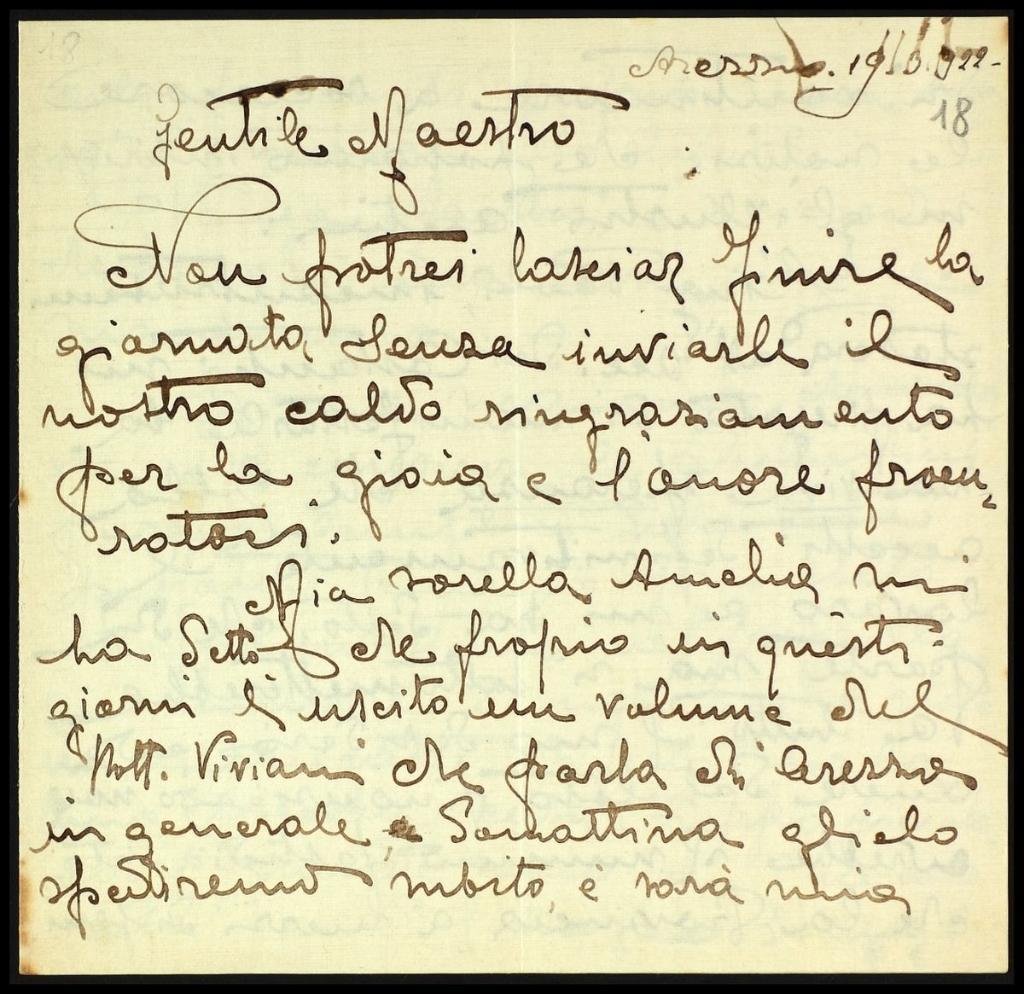 18
Arezzo. 19 922-
18
Gentile Maestro
Non potrei lasciar finire la
giornata senza inviarle il
nostro caldo ringraziamento
per la gioia e l'onore procu=
ratoci.
Mia sorella Amelia mi
ha detto che proprio in questi
giorni è uscito un volume del
Dott. Viviani che parla di Arezzo
in generale, e Domattina glielo
spediremo subito, e sarà mia